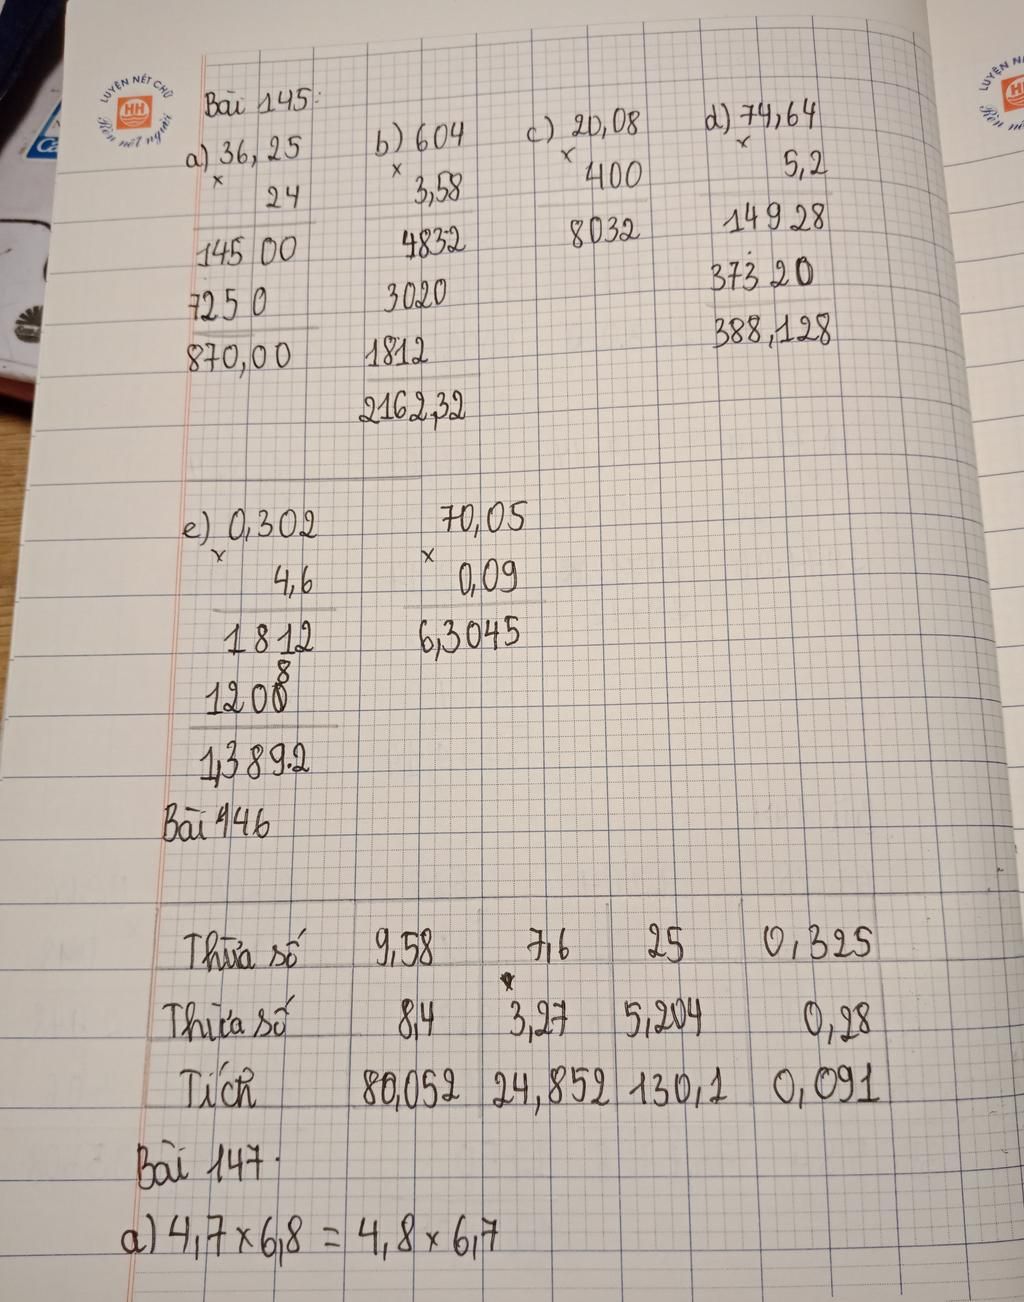 LUYỆN NÉT CHỮ
HH
Rèn nết người
Bài 145:
a) 36,25 b) 604 c) 20,08 d) 74,64
x 24 x 3,58 x 400 x 5,2
145 00 4832 8032 149 28
725 0 3020 373 20
870,00 1812 388,128
2162,32
e) 0,302 70,05
x 4,6 x 0,09
1 812 6,3045
1208
1,389.2
Bài 146
Thừa số 9,58 7,6 25 0,325
Thừa số 8,4 3,27 5,204 0,28
Tích 80,052 24,852 130,1 0,091
Bài 147.
a) 4,7 x 6,8 = 4,8 x 6,7